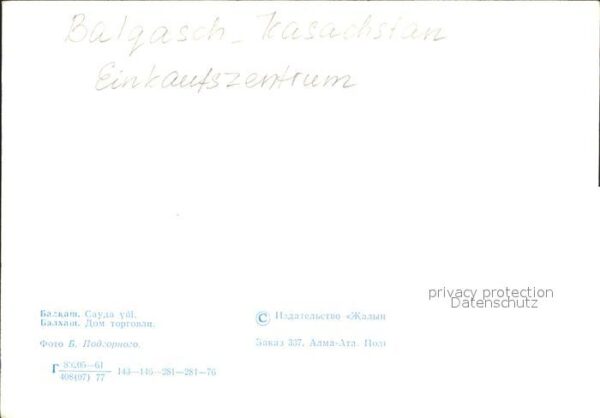 Balqasch - Kasachstan
Einkaufszentrum
privacy protection
Datenschutz
Балқаш. Сауда үйі.
Балхаш. Дом торговли.
© Издательство «Жалын
Фото Б. Подгорного.
Заказ 337. Алма-Ата. Поли
Г
408(07) 77
143—146—281—281—76